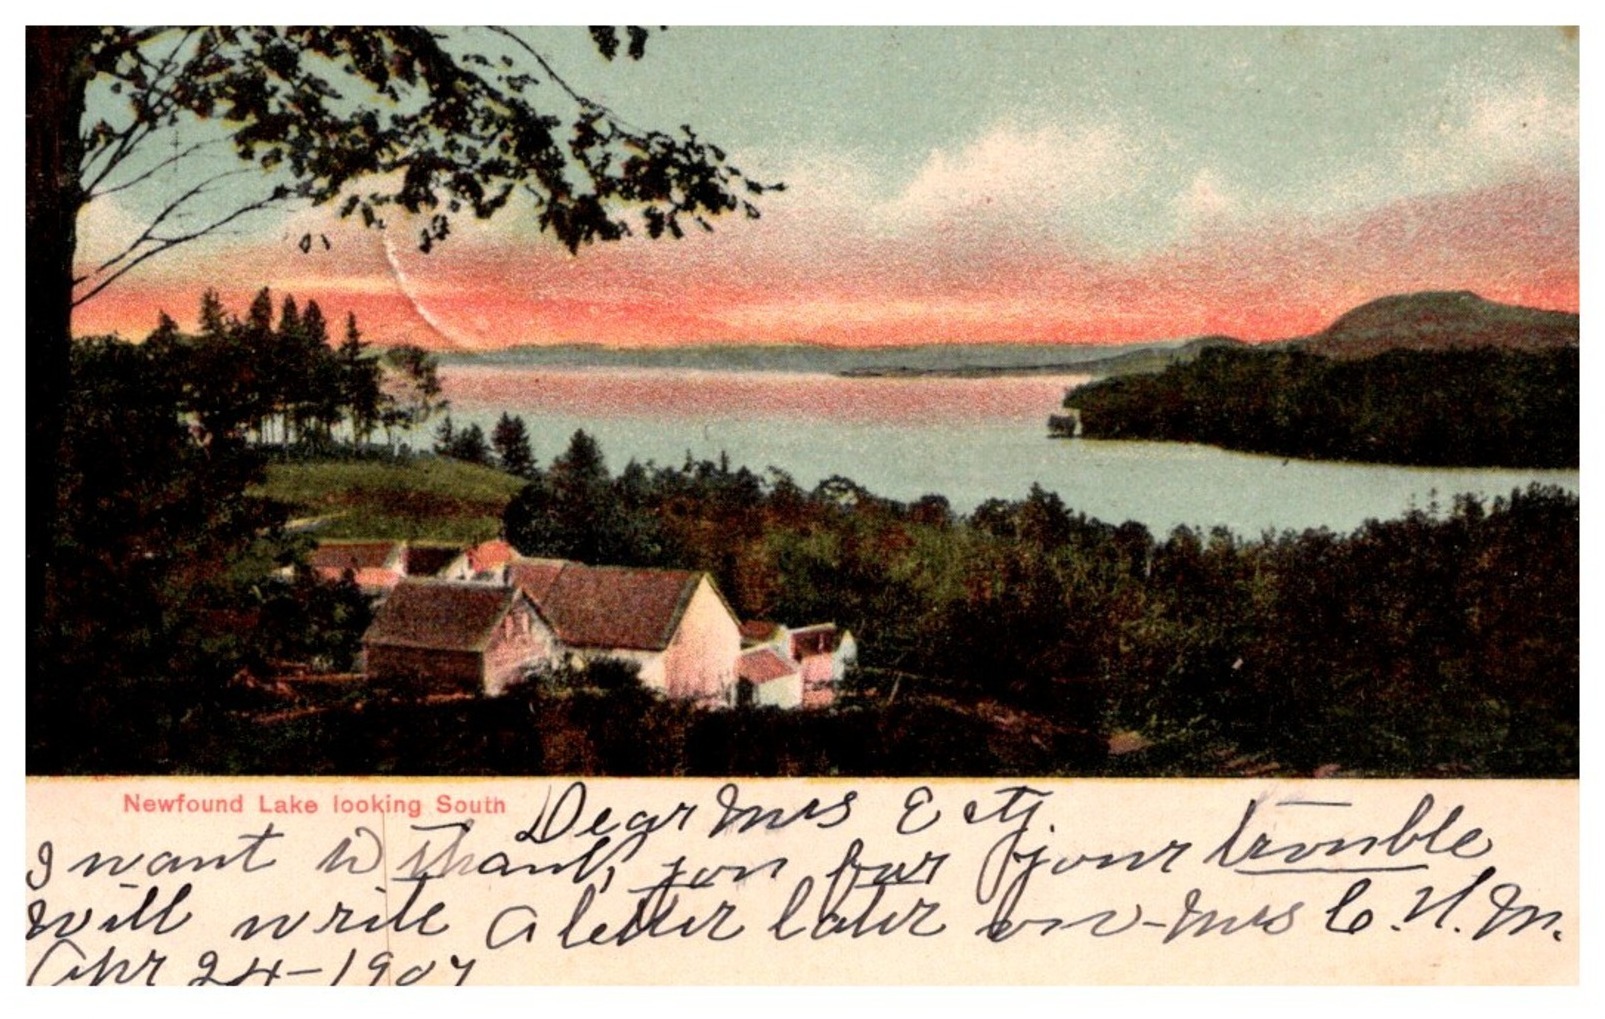 Newfound Lake looking South
Dear Mrs
I want to thank you for your trouble
will write a letter later on - Mrs C. H. M.
Apr 24 - 1907